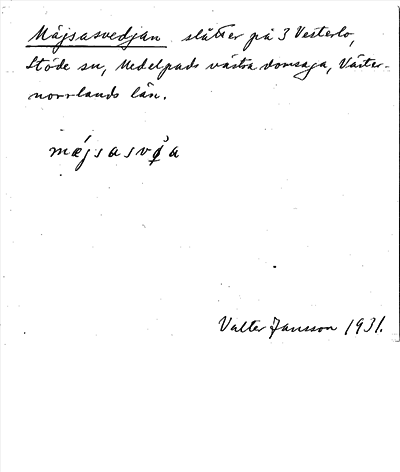 Måjsasvedjan slåtter på 3 Vesterlo,
Stöde sn, Medelpads västra domsaga, Väster-
norrlands län.
Valter Jansson 1931.